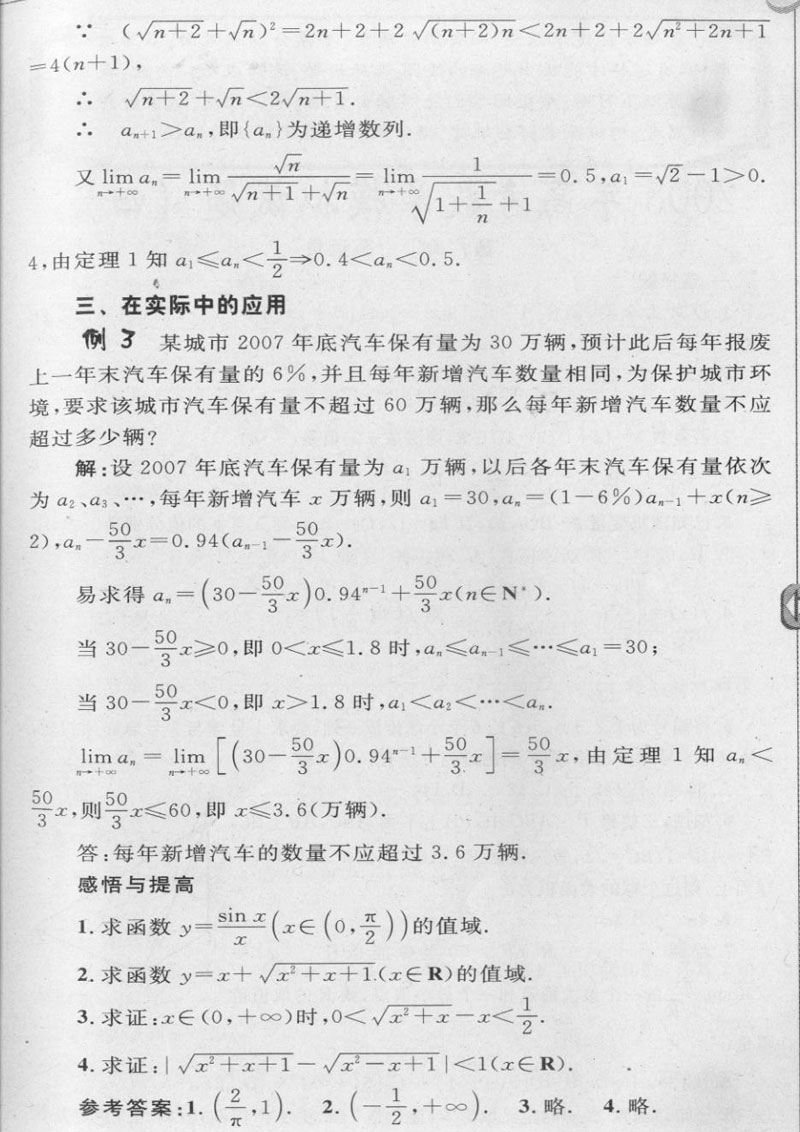 ∵ (√(n+2)+√n)²=2n+2+2√((n+2)n)<2n+2+2√(n²+2n+1)
=4(n+1),
∴ √(n+2)+√n<2√(n+1).
∴ aₙ₊₁>aₙ,即{aₙ}为递增数列.
又 lim(n→+∞) aₙ=lim(n→+∞) √n/(√(n+1)+√n)=lim(n→+∞) 1/(√(1+1/n)+1)=0.5,a₁=√2-1>0.
4,由定理 1 知 a₁≤aₙ<1/2⇒0.4<aₙ<0.5.
三、在实际中的应用
例 3 某城市 2007 年底汽车保有量为 30 万辆,预计此后每年报废
上一年末汽车保有量的 6%,并且每年新增汽车数量相同,为保护城市环
境,要求该城市汽车保有量不超过 60 万辆,那么每年新增汽车数量不应
超过多少辆?
解:设 2007 年底汽车保有量为 a₁ 万辆,以后各年末汽车保有量依次
为 a₂、a₃、…,每年新增汽车 x 万辆,则 a₁=30,aₙ=(1-6%)aₙ₋₁+x(n≥
2),aₙ-50/3x=0.94(aₙ₋₁-50/3x).
易求得 aₙ=(30-50/3x)0.94ⁿ⁻¹+50/3x(n∈N*).
当 30-50/3x≥0,即 0<x≤1.8 时,aₙ≤aₙ₋₁≤…≤a₁=30;
当 30-50/3x<0,即 x>1.8 时,a₁<a₂<…<aₙ.
lim(n→+∞) aₙ=lim(n→+∞)[(30-50/3x)0.94ⁿ⁻¹+50/3x]=50/3x,由定理 1 知 aₙ<
50/3x,则50/3x≤60,即 x≤3.6(万辆).
答:每年新增汽车的数量不应超过 3.6 万辆.
感悟与提高
1.求函数 y=sin x/x(x∈(0,π/2))的值域.
2.求函数 y=x+√(x²+x+1)(x∈R)的值域.
3.求证:x∈(0,+∞)时,0<√(x²+x)-x<1/2.
4.求证:|√(x²+x+1)-√(x²-x+1)|<1(x∈R).
参考答案:1.(2/π,1). 2.(-1/2,+∞). 3.略. 4.略.